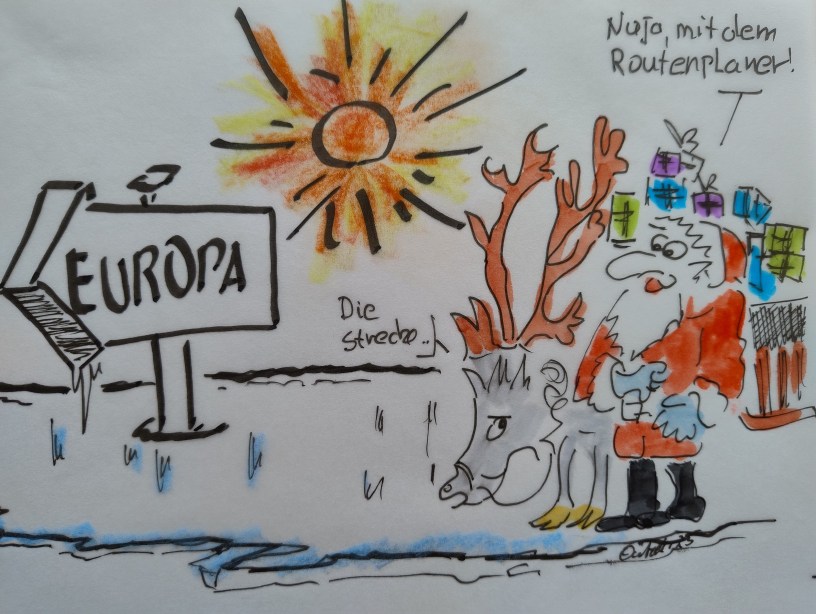 Nuja, mit dem
Routenplaner!
EUROPA
Die
strecke..